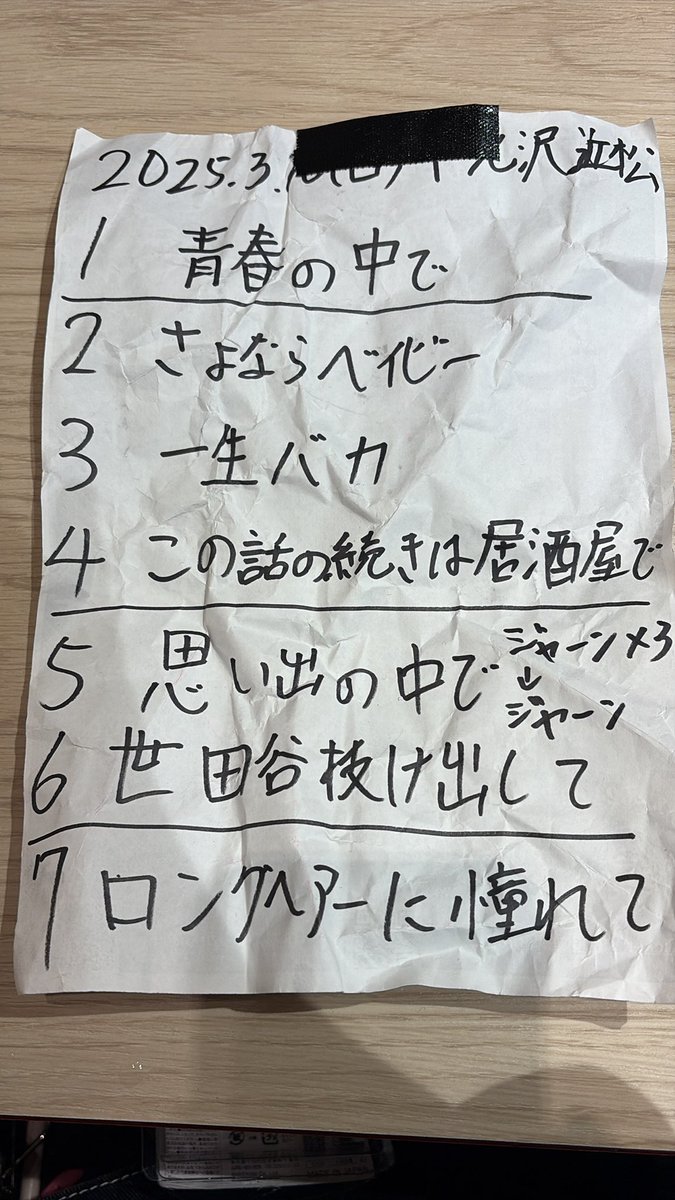 2025.3. 沢近松
1 青春の中で
2 さよならベイビー
3 一生バカ
4 この話の続きは居酒屋で
5 思い出の中で ジャーン×3
↓
ジャーン
6 世田谷抜け出して
7 ロングヘアーに憧れて